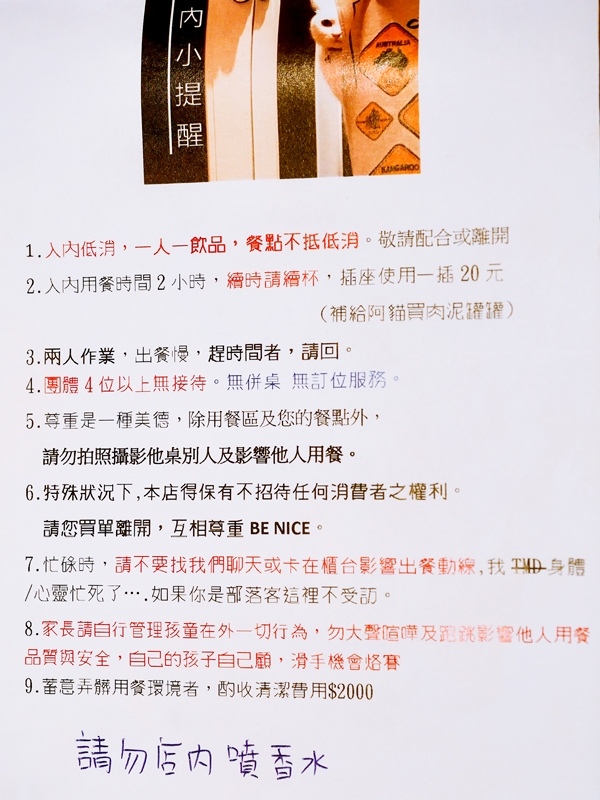 內小提醒
AUSTRALIA
KANGAROO
1.入內低消，一人一飲品，餐點不抵低消。敬請配合或離開
2.入內用餐時間2小時，續時請續杯，插座使用一插20元
（補給阿貓買肉泥罐罐）
3.兩人作業，出餐慢，趕時間者，請回。
4.團體4位以上無接待。無併桌 無訂位服務。
5.尊重是一種美德，除用餐區及您的餐點外，
請勿拍照攝影他桌別人及影響他人用餐。
6.特殊狀況下,本店得保有不招待任何消費者之權利。
請您買單離開，互相尊重 BE NICE。
7.忙碌時，請不要找我們聊天或卡在櫃台影響出餐動線,我 TMD 身體
/心靈忙死了….如果你是部落客這裡不受訪。
8.家長請自行管理孩童在外一切行為，勿大聲喧嘩及跑跳影響他人用餐
品質與安全，自己的孩子自己顧，滑手機會烙賽
9.蓄意弄髒用餐環境者，酌收清潔費用$2000
請勿店內噴香水